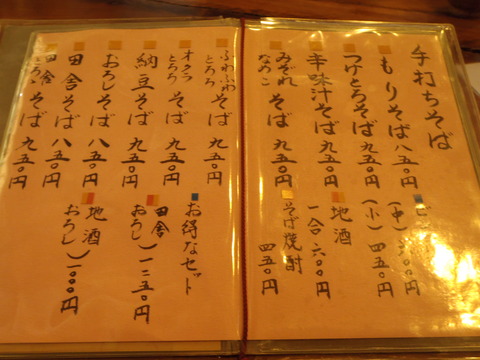 手打ちそば
もりそば 八五〇円
つけとろそば 九五〇円
辛味汁そば 九五〇円
みぞれ
なめこ そば 九五〇円
(中) 六〇〇円
(小) 四五〇円
地酒
一合 六〇〇円
そば焼酎
四五〇円
ふわふわ
とろろ そば 九五〇円
オクラ
とろろ そば 九五〇円
納豆そば 九五〇円
おろしそば 八五〇円
田舎そば 八五〇円
田舎
とろろ そば 九五〇円
お得なセット
田舎
おろし ) 一二五〇円
地酒
おろし ) 一〇〇〇円